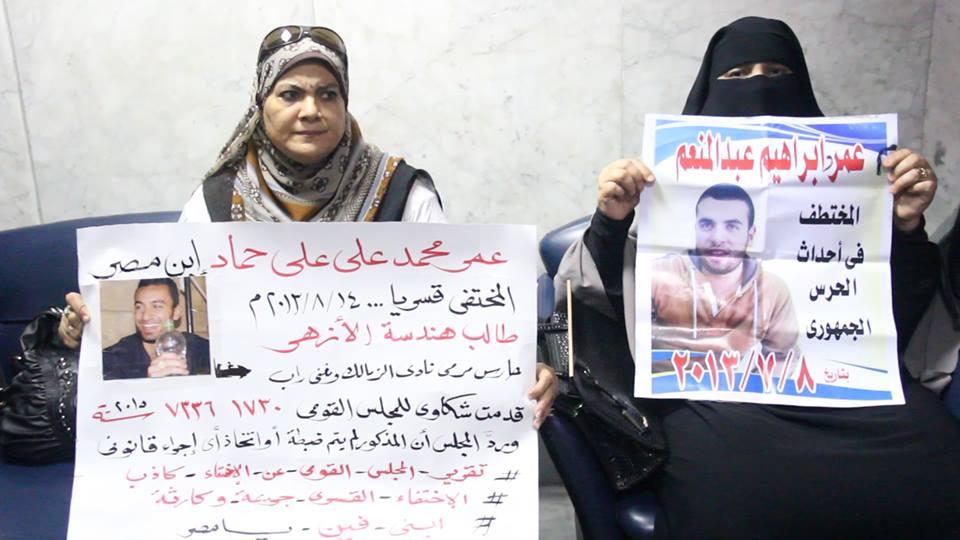 عمر محمد على على حماد إبن مصر
المختفى قسريا ... ٢٠١٣/٨/١٤ م
طالب هندسة الأزهر
حارس مرمى نادى الزمالك ويغنى راب
قدمت شكاوى للمجلس القومى ١٧٣٠ ٧٣٣٦ سنة ٢٠١٥
ورد المجلس أن المذكور لم يتم ضبطة أو اتخاذ أى إجراء قانونى
# تقرير - المجلس - القومى - عن - الإختفاء - كاذب
# الإختفاء - القسرى - جريمة - وكارثة
# ابنى - فين - يا مصر
عمرو ابراهيم عبدالمنعم
المختطف
فى أحداث
الحرس
الجمهورى
بتاريخ ٢٠١٣/٧/٨